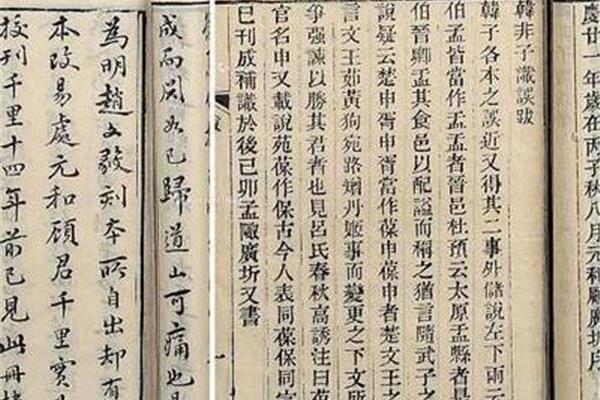 慶廿一年歲在丙子秋八月元和顧廣圻序
韓非子識誤跋
韓子各本之誤近又得其二事外儲說左下兩云
伯孟皆當作盂盂者晉邑杜預云太原盂縣者是
晉卿盂其食邑以配謚而稱之猶言隨武子之
說疑云楚申胥申胥當作葆申葆申者楚文王之
言文王茹黃狗宛路矰丹姬事而變更之下文所
爭强諫以勝其君者也見呂氏春秋高誘注曰葆
官名申又載說苑葆作保古今人表同葆保同字
巳刊成補識於後己卯孟陬廣圻又書
成而閱已歸道山可痛也
為明趙文毅刻本所自出却有
本改易處元和顧君千里實
校刊千里十四年前已見此冊